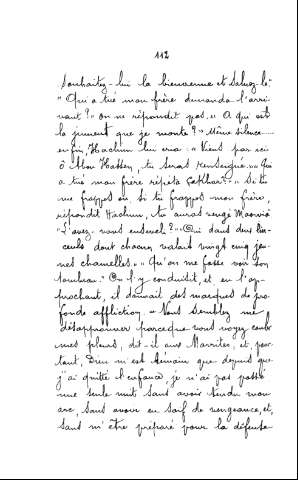 112
Souhaitez-lui la bienvenue et Saluez-le.
" Qui a tué mon frère demanda l'arri-
vant ? " on ne répondit pas. " A qui est
la jument que je monte ? " Même silence.....
enfin, Hachim lui cria : " Viens par ici
ô Abou Hassen, tu seras renseigné. " " Qui
a tué mon frère répéta Sakhar ? " " Si tu
me frappes ou si tu frappes mon frère,
répondit Hachim, tu auras vengé Maowia
" L'avez-vous enseveli ? " " Oui dans deux lin-
ceuls dont chacun valant vingt cinq jeu-
nes chamelles. " " Qu'on me fasse voir son
tombeau. " On l'y conduisit, et en l'ap-
prochant, il donnait des marques de pro-
fonde affliction. " Vous semblez me
désapprouver parceque vous voyez couler
mes pleurs, dit-il aux Marrites, et, pour-
tant, Dieu m'est témoin que depuis que
j'ai quitté l'enfance, je n'ai pas passé
une seule nuit sans avoir tendu mon
arc, sans avoir eu soif de vengeance, et,
sans m'être préparé pour la défense